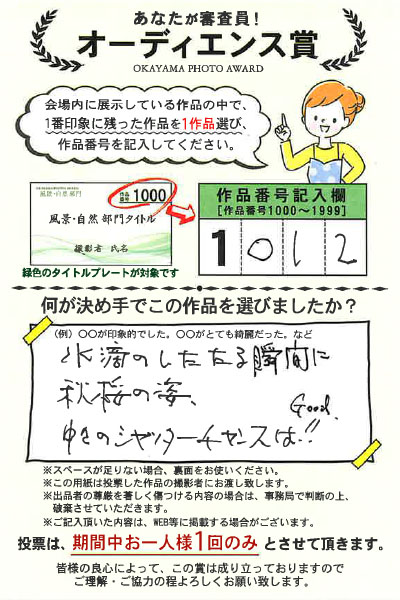 あなたが審査員！
オーディエンス賞
OKAYAMA PHOTO AWARD
会場内に展示している作品の中で、
1番印象に残った作品を1作品選び、
作品番号を記入してください。
風景・自然部門
作品番号 1000
風景・自然 部門タイトル
撮影者 氏名
緑色のタイトルプレートが対象です
作品番号記入欄
[作品番号1000～1999]
1 0 1 2
何が決め手でこの作品を選びましたか？
（例）〇〇が印象的でした。〇〇がとても綺麗だった。など
水滴のしたたる瞬間に
秋桜の姿、
Good.
のシャッターチャンスは!!
※スペースが足りない場合、裏面をお使いください。
※この用紙は投票した作品の撮影者にお渡し致します。
※出品者の尊厳を著しく傷つける内容の場合は、事務局で判断の上、
破棄させていただきます。
※ご記入頂いた内容は、WEB等に掲載する場合がございます。
投票は、期間中お一人様1回のみ とさせて頂きます。
皆様の良心によって、この賞は成り立っておりますので
ご理解・ご協力の程よろしくお願い致します。